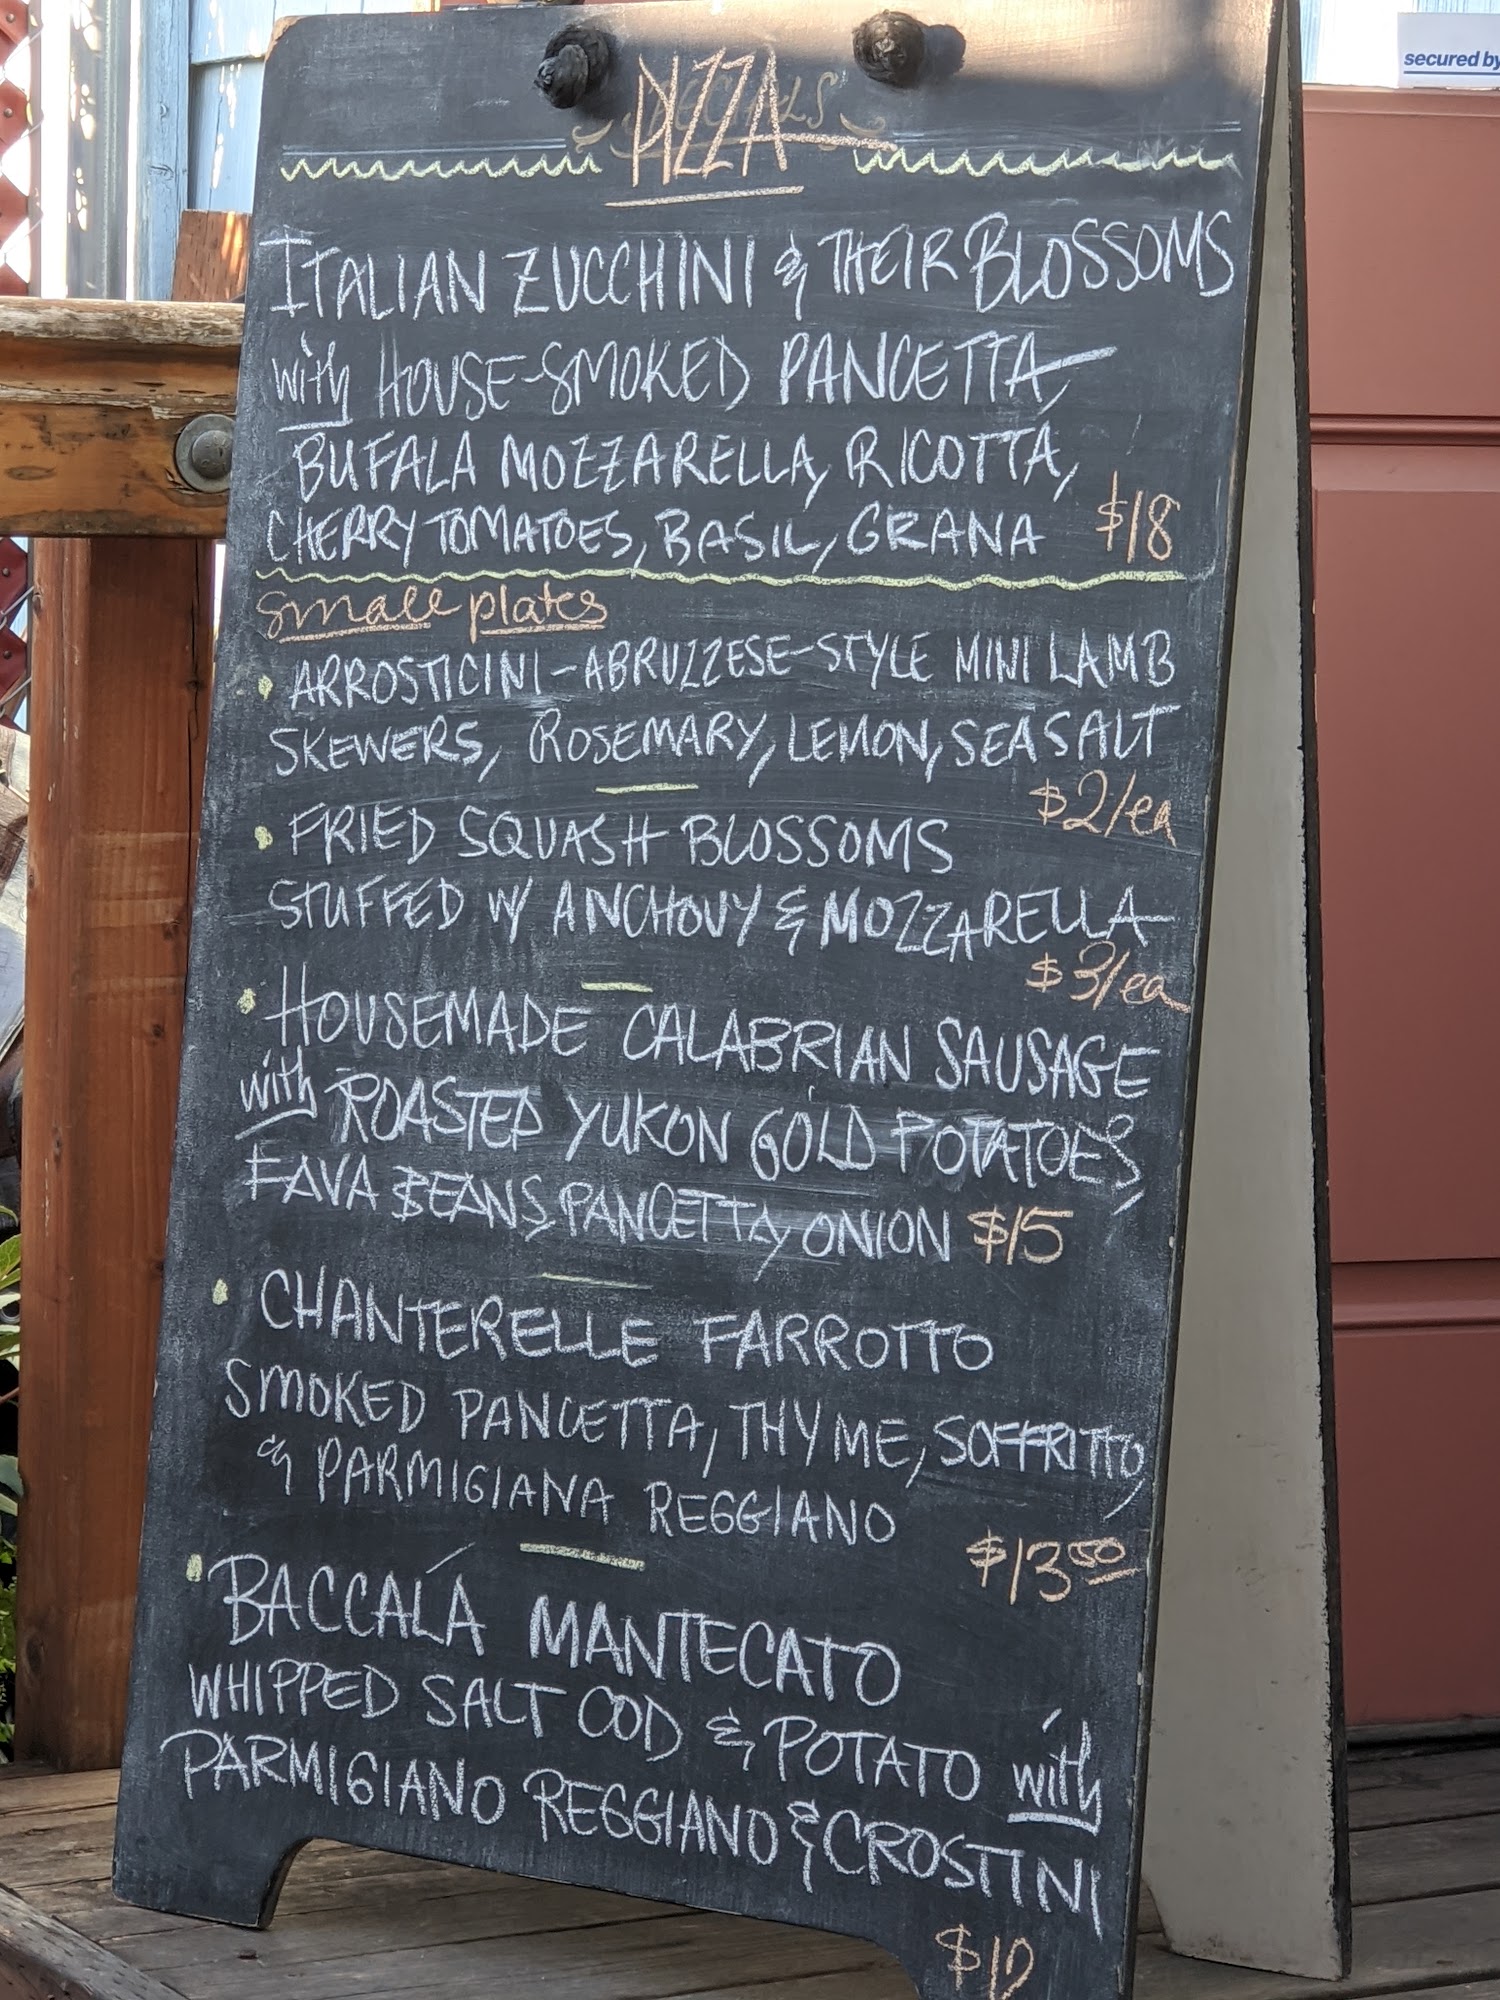 secured by
SPECIALS
PIZZA
ITALIAN ZUCCHINI & THEIR BLOSSOMS
with HOUSE-SMOKED PANCETTA
BUFALA MOZZARELLA, RICOTTA,
CHERRY TOMATOES, BASIL, GRANA $18
small plates
• ARROSTICINI-ABRUZZESE-STYLE MINI LAMB
SKEWERS, ROSEMARY, LEMON, SEA SALT
$2/ea
• FRIED SQUASH BLOSSOMS
STUFFED W/ ANCHOVY & MOZZARELLA
$3/ea
• HOUSEMADE CALABRIAN SAUSAGE
with ROASTED YUKON GOLD POTATOES,
FAVA BEANS, PANCETTA, ONION $15
• CHANTERELLE FARROTTO
SMOKED PANCETTA, THYME, SOFFRITTO,
& PARMIGIANA REGGIANO
$13.50
• BACCALÁ MANTECATO
WHIPPED SALT COD & POTATO with
PARMIGIANO REGGIANO & CROSTINI
$10